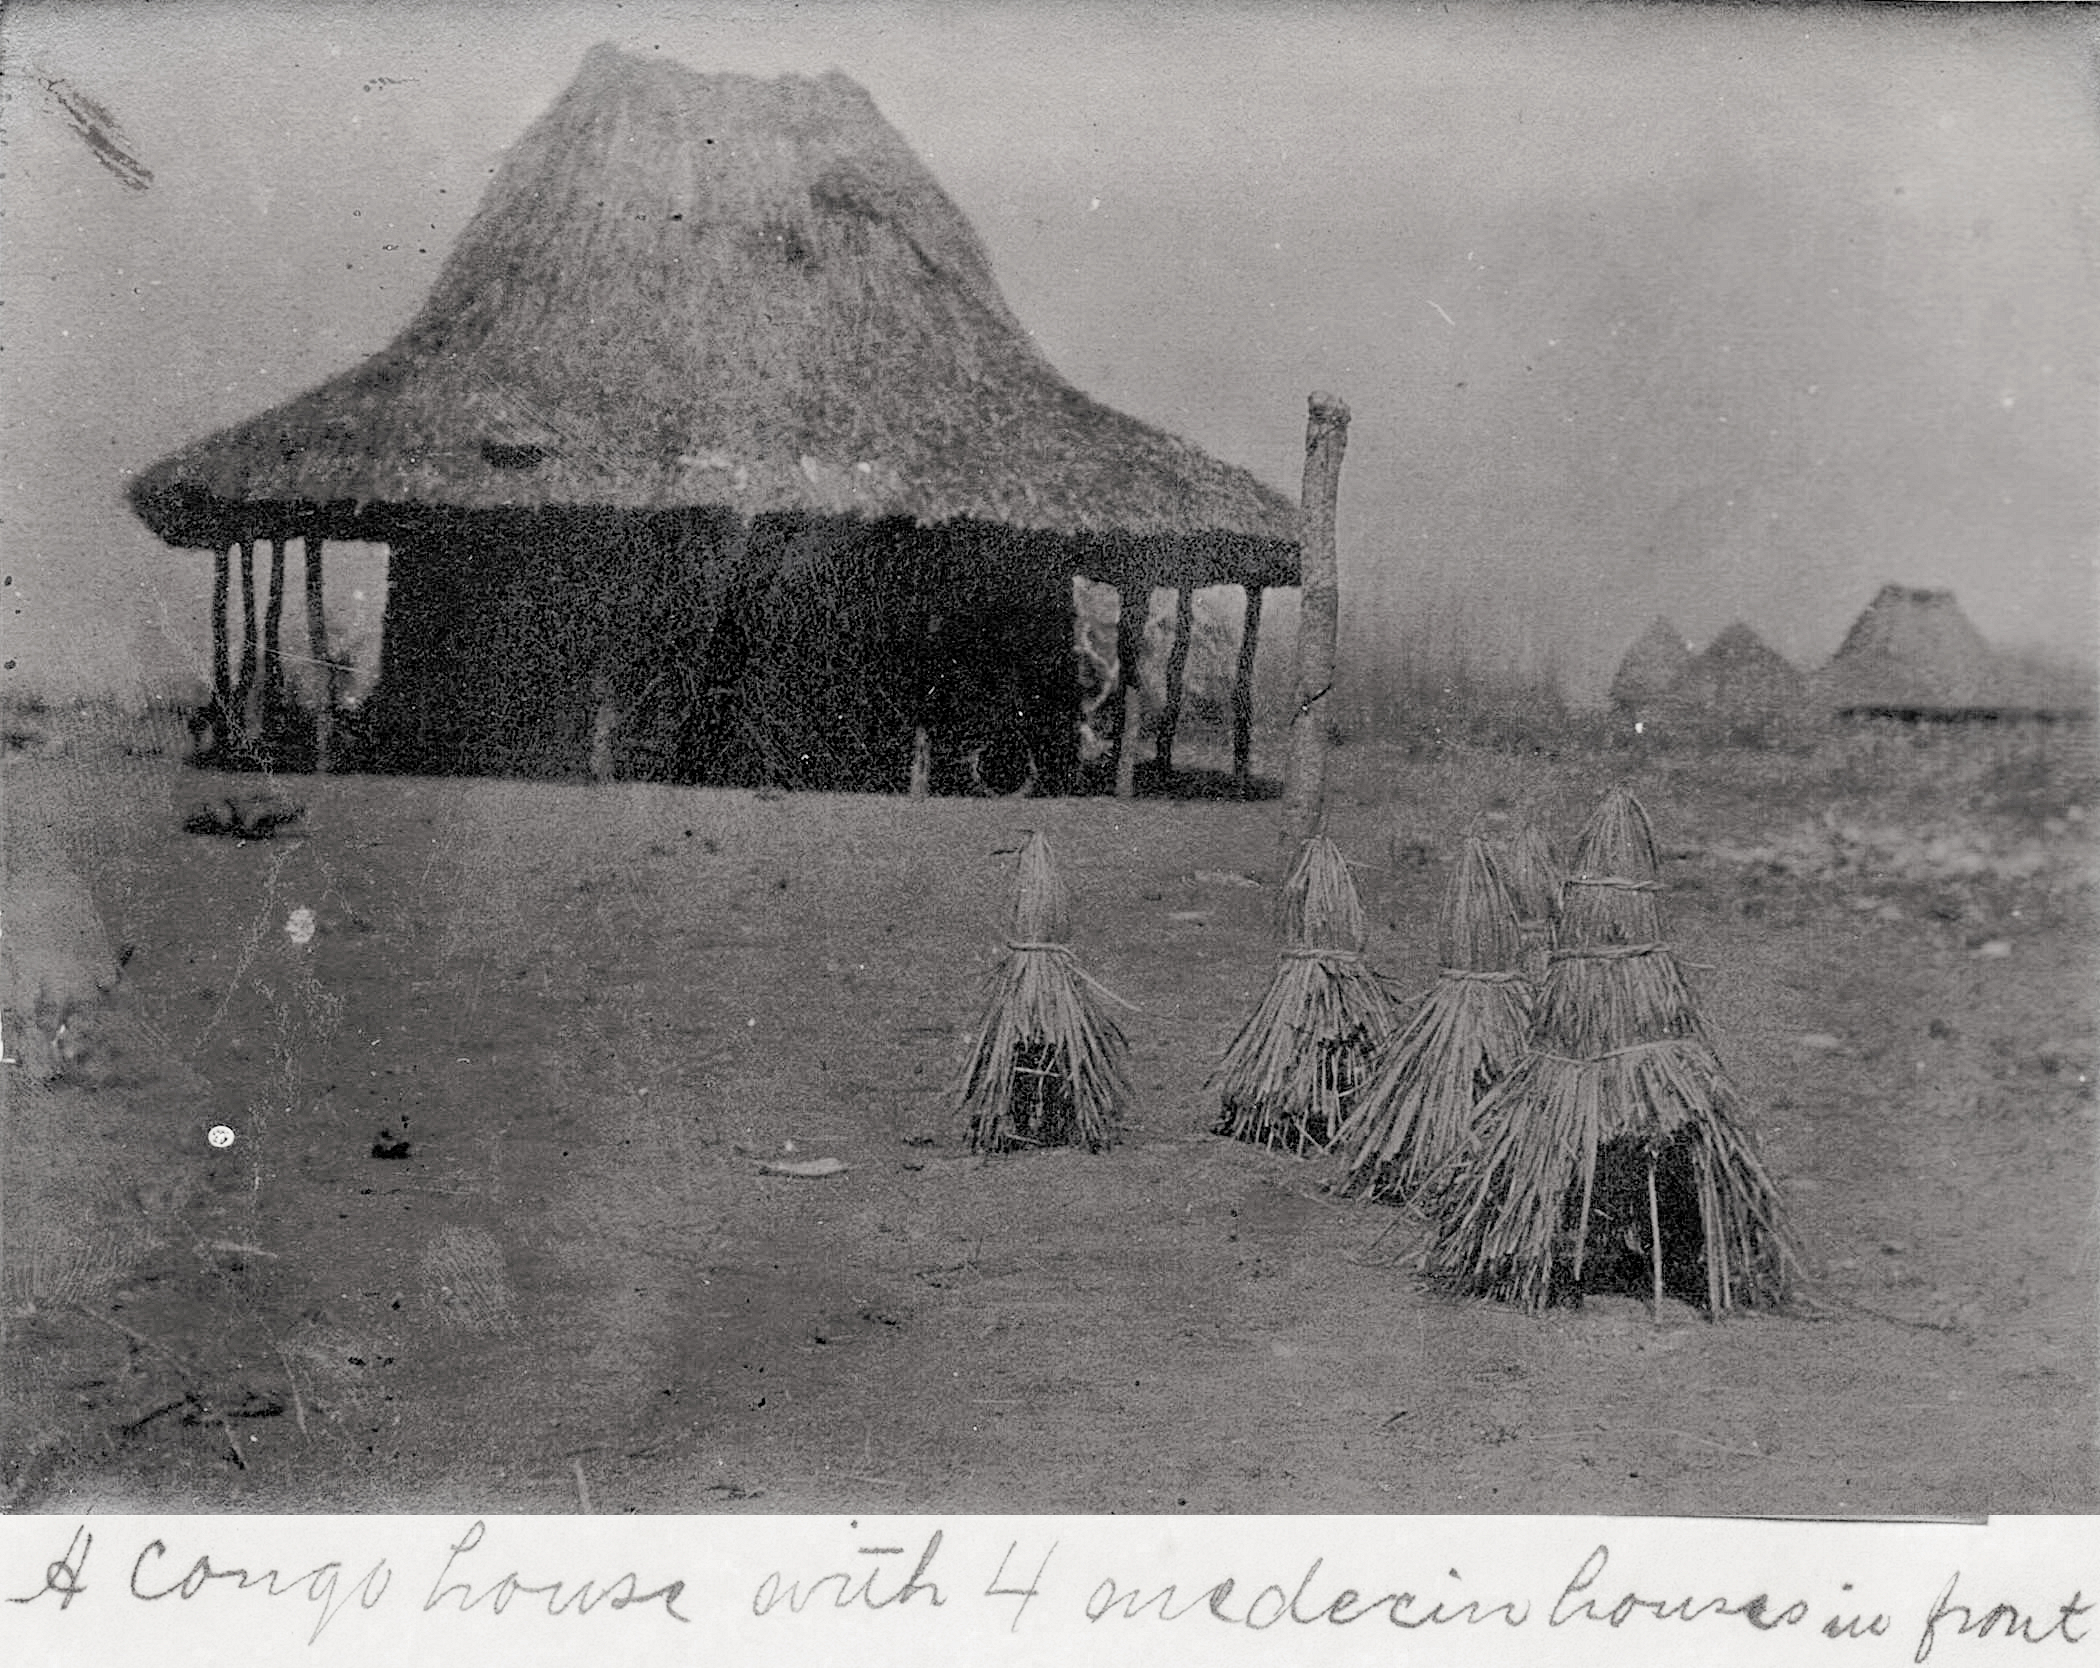 A Congo house with 4 medecin houses in front